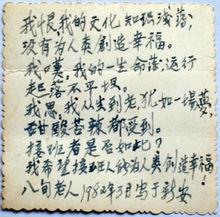 我恨我的文化知识浅薄,
没有为人类创造幸福。
我嘆,我的一生命运
起落不平坦。
我思,我从生到老犹如一場夢,
甜酸苦辣都受到。
接班者是否如此?
我希望接班人能为人类創造幸福
八旬老人1982年3月写于新安